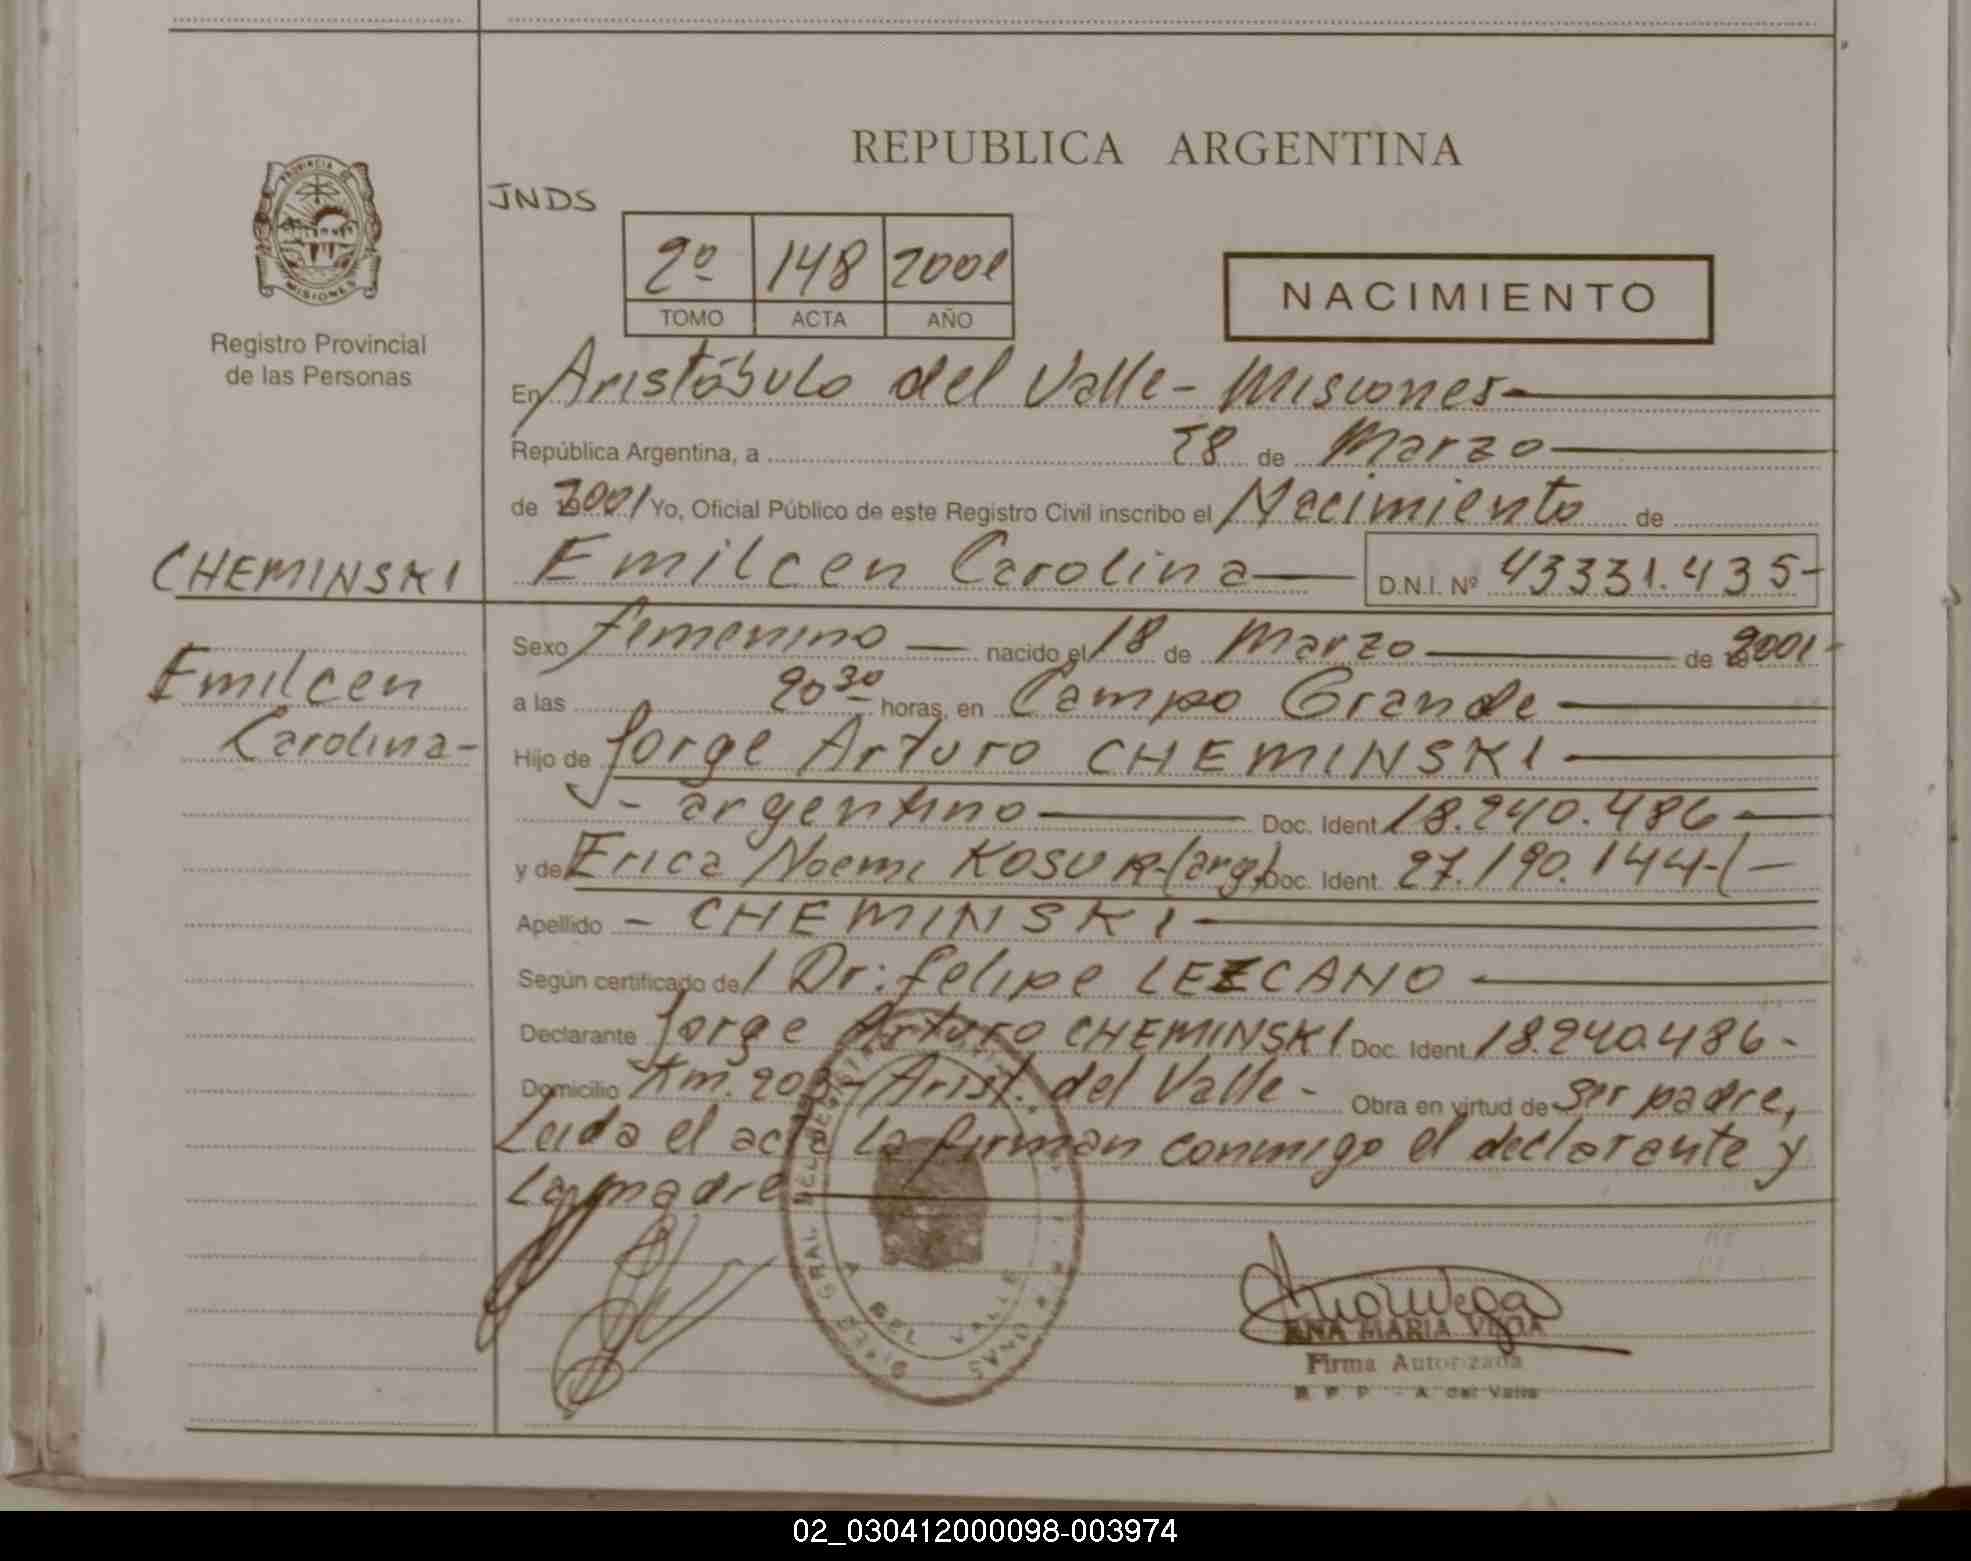 REPUBLICA ARGENTINA
JNDS
PROVINCIA DE
MISIONES
Registro Provincial
de las Personas
2º 148 2001
TOMO ACTA AÑO
NACIMIENTO
En Aristóbulo del Valle - Misiones
República Argentina, a 28 de Marzo
de 2001 Yo, Oficial Público de este Registro Civil inscribo el Nacimiento de
CHEMINSKI
Emilcen Carolina
Emilcen Carolina D.N.I. Nº 43331.435-
Sexo femenino nacido el 18 de Marzo de 2001-
a las 20 30 horas, en Campo Grande
Hijo de Jorge Arturo CHEMINSKI
- argentino Doc. Ident. 18.240.486
y de Erica Noemi KOSUR-(arg) Doc. Ident. 27.190.144-
Apellido - CHEMINSKI
Según certificado del Dr: Felipe LEZCANO
Declarante Jorge Arturo CHEMINSKI Doc. Ident. 18.240.486-
Domicilio Km. 203- Arist. del Valle - Obra en virtud de ser padre,
Leida el acta la firman conmigo el declarante y
la madre
A DEL VALLE
ANA MARIA VEGA
Firma Autorizada
R P P - A del Valle
02_030412000098-003974